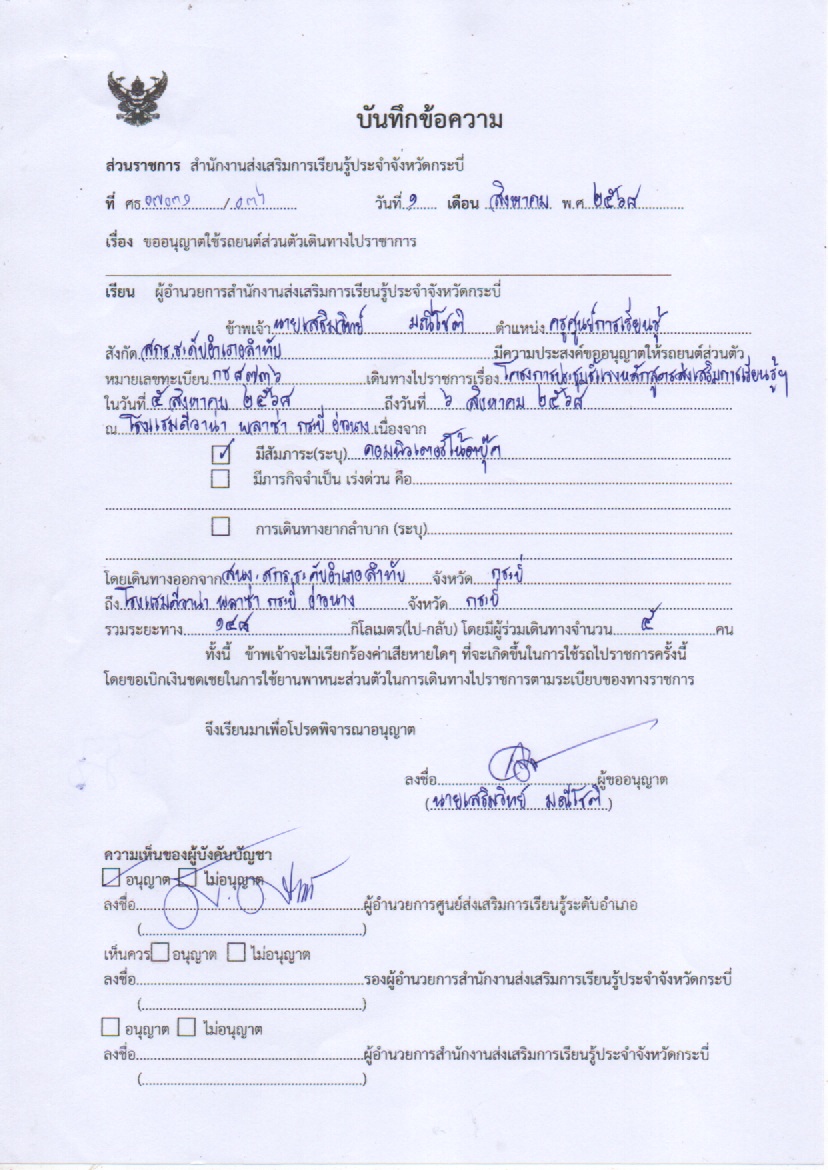 บันทึกข้อความ
ส่วนราชการ สำนักงานส่งเสริมการเรียนรู้ประจำจังหวัดกระบี่
ที่ ศธ ๐๗๐๓๑ / ๐๓๖ วันที่ ๑ เดือน สิงหาคม พ.ศ ๒๕๖๘
เรื่อง ขออนุญาตใช้รถยนต์ส่วนตัวเดินทางไปราชาการ
เรียน ผู้อำนวยการสำนักงานส่งเสริมการเรียนรู้ประจำจังหวัดกระบี่
ข้าพเจ้า นายเสริมวิทย์ มณีโชติ ตำแหน่ง ครูศูนย์การเรียนรู้
สังกัด สกร.ระดับอำเภอลำทับ มีความประสงค์ขออนุญาตให้รถยนต์ส่วนตัว
หมายเลขทะเบียน กข ๘๗๓๖ เดินทางไปราชการเรื่อง โครงการประชุมชี้แจงหลักสูตรส่งเสริมการเรียนรู้ฯ
ในวันที่ ๕ สิงหาคม ๒๕๖๘ ถึงวันที่ ๖ สิงหาคม ๒๕๖๘
ณ โรงแรมดีวาน่า พลาซ่า กระบี่ อ่าวนาง เนื่องจาก
มีสัมภาระ(ระบุ) คอมพิวเตอร์โน้ตบุ๊ค
มีภารกิจจำเป็น เร่งด่วน คือ
การเดินทางยากลำบาก (ระบุ)
โดยเดินทางออกจาก สนง.สกร.ระดับอำเภอลำทับ จังหวัด กระบี่
ถึง โรงแรมดีวาน่า พลาซ่า กระบี่ อ่าวนาง จังหวัด กระบี่
รวมระยะทาง ๑๔๘ กิโลเมตร(ไป-กลับ) โดยมีผู้ร่วมเดินทางจำนวน ๕ คน
ทั้งนี้ ข้าพเจ้าจะไม่เรียกร้องค่าเสียหายใดๆ ที่จะเกิดขึ้นในการใช้รถไปราชการครั้งนี้
โดยขอเบิกเงินชดเชยในการใช้ยานพาหนะส่วนตัวในการเดินทางไปราชการตามระเบียบของทางราชการ
จึงเรียนมาเพื่อโปรดพิจารณาอนุญาต
ลงชื่อ ผู้ขออนุญาต
(นายเสริมวิทย์ มณีโชติ)
ความเห็นของผู้บังคับบัญชา
อนุญาต ไม่อนุญาต
ลงชื่อ ผู้อำนวยการศูนย์ส่งเสริมการเรียนรู้ระดับอำเภอ
(....................)
เห็นควร อนุญาต ไม่อนุญาต
ลงชื่อ รองผู้อำนวยการสำนักงานส่งเสริมการเรียนรู้ประจำจังหวัดกระบี่
(....................)
อนุญาต ไม่อนุญาต
ลงชื่อ ผู้อำนวยการสำนักงานส่งเสริมการเรียนรู้ประจำจังหวัดกระบี่
(....................)